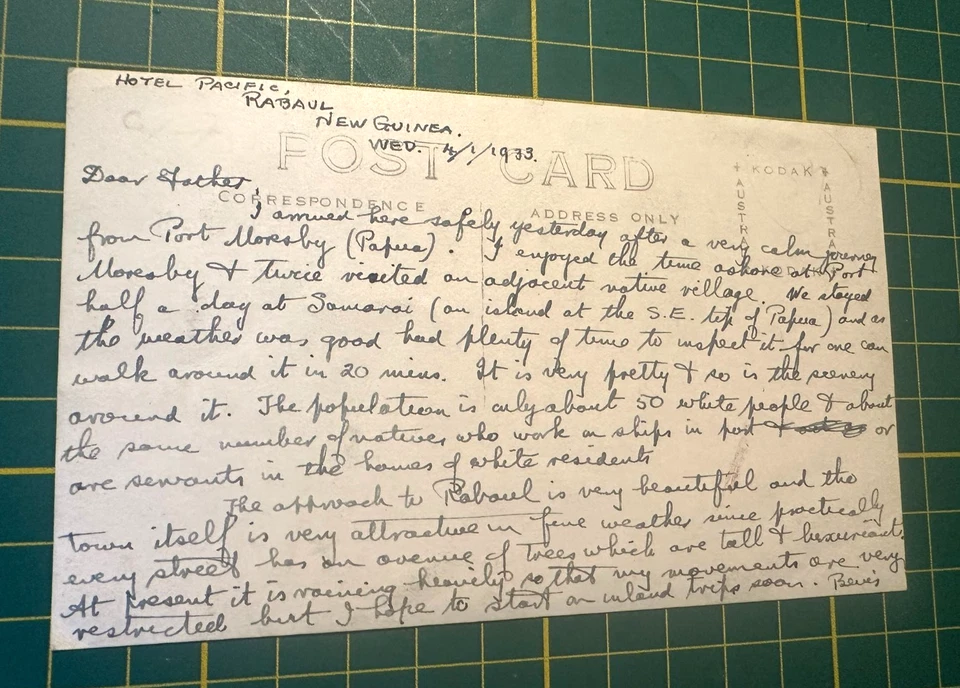 HOTEL PACIFIC,
RABAUL
NEW GUINEA.
WED. 4/1/1933.
POST CARD
+ KODAK +
AUSTRA
AUSTRA
CORRESPONDENCE
ADDRESS ONLY
Dear Father,
I arrived here safely yesterday after a very calm journey
from Port Moresby (Papua). I enjoyed the time ashore at Port
Moresby & twice visited an adjacent native village. We stayed
half a day at Samarai (an island at the S.E. tip of Papua) and as
the weather was good had plenty of time to inspect it for one can
walk around it in 20 mins. It is very pretty & so is the scenery
around it. The population is only about 50 white people & about
the same number of natives who work on ships in port or
are servants in the homes of white residents
The approach to Rabaul is very beautiful and the
town itself is very attractive in fine weather since practically
every street has an avenue of trees which are tall & luxuriant.
At present it is raining heavily so that my movements are very
restricted but I hope to start on inland trips soon.